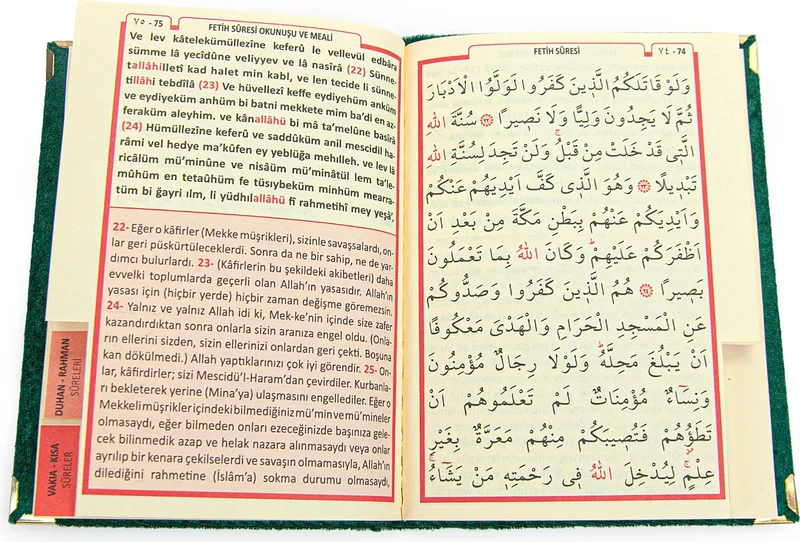 ٧٥ - 75
FETİH SÛRESİ OKUNUŞU VE MEALİ
Ve lev kâtelekümüllezîne keferû le vellevül edbâra
sümme lâ yecidûne veliyyev ve lâ nasîrâ (22) Sünne-
tallâhilletî kad halet min kabl, ve len tecide li sünne-
tillâhi tebdîlâ (23) Ve hüvellezî keffe eydiyehüm anküm
ve eydiyeküm anhüm bi batni mekkete mim ba'di en az-
feraküm aleyhim. ve kânallâhü bi mâ ta'melûne basîrâ
(24) Hümüllezîne keferû ve saddûküm anil mescidil ha-
râmi vel hedye ma'kûfen ey yeblüğa mehılleh. ve lev lâ
ricâlüm mü'minûne ve nisâüm mü'minâtül lem ta'le-
mûhüm en tetaûhüm fe tüsıybeküm minhüm mearra-
tüm bi ğayri ılm, li yüdhılallâhü fî rahmetihî mey yeşâ',
22- Eğer o kâfirler (Mekke müşrikleri), sizinle savaşsalardı, on-
lar geri püskürtüleceklerdi. Sonra da ne bir sahip, ne de yar-
dımcı bulurlardı. 23- (Kâfirlerin bu şekildeki akibetleri) daha
evvelki toplumlarda geçerli olan Allah'ın yasasıdır. Allah'ın
yasası için (hiçbir yerde) hiçbir zaman değişme göremezsin.
24- Yalnız ve yalnız Allah idi ki, Mek-ke'nin içinde size zafer
kazandırdıktan sonra onlarla sizin aranıza engel oldu. (Onla-
rın ellerini sizden, sizin ellerinizi onlardan geri çekti. Boşuna
kan dökülmedi.) Allah yaptıklarınızı çok iyi görendir. 25- On-
lar, kâfirdirler; sizi Mescidü'l-Haram'dan çevirdiler. Kurbanla-
rı bekleterek yerine (Mina'ya) ulaşmasını engellediler. Eğer o
Mekkeli müşrikler içindeki bilmediğiniz mü'min ve mü'mineler
olmasaydı, eğer bilmeden onları ezeceğinizde başınıza gele-
cek bilinmedik azap ve helak nazara alınmasaydı veya onlar
ayrılıp bir kenara çekilselerdi ve savaşın olmamasıyla, Allah'ın
dilediğini rahmetine (İslâm'a) sokma durumu olmasaydı,
DUHAN - RAHMAN
SÛRELERİ
VAKIA - KISA
SÛRELER
FETİH SÛRESİ
٧٤ - 74
وَلَوْ قَاتَلَكُمُ الَّذِينَ كَفَرُوا لَوَلَّوُا الْاَدْبَارَ
ثُمَّ لَا يَجِدُونَ وَلِيًّا وَلَا نَصِيرًا ﴿٢٢﴾ سُنَّةَ اللّٰهِ
الَّتِى قَدْ خَلَتْ مِنْ قَبْلُۚ وَلَنْ تَجِدَ لِسُنَّةِ اللّٰهِ
تَبْدِيلًا ﴿٢٣﴾ وَهُوَ الَّذِى كَفَّ اَيْدِيَهُمْ عَنْكُمْ
وَاَيْدِيَكُمْ عَنْهُمْ بِبَطْنِ مَكَّةَ مِنْ بَعْدِ اَنْ
اَظْفَرَكُمْ عَلَيْهِمْۜ وَكَانَ اللّٰهُ بِمَا تَعْمَلُونَ
بَصِيرًا ﴿٢٤﴾ هُمُ الَّذِينَ كَفَرُوا وَصَدُّوكُمْ
عَنِ الْمَسْجِدِ الْحَرَامِ وَالْهَدْىَ مَعْكُوفًا
اَنْ يَبْلُغَ مَحِلَّهُۜ وَلَوْلَا رِجَالٌ مُؤْمِنُونَ
وَنِسَٓاءٌ مُؤْمِنَاتٌ لَمْ تَعْلَمُوهُمْ اَنْ
تَطَؤُ۫هُمْ فَتُصِيبَكُمْ مِنْهُمْ مَعَرَّةٌ بِغَيْرِ
عِلْمٍۚ لِيُدْخِلَ اللّٰهُ فِى رَحْمَتِهِ مَنْ يَشَٓاءُۚ